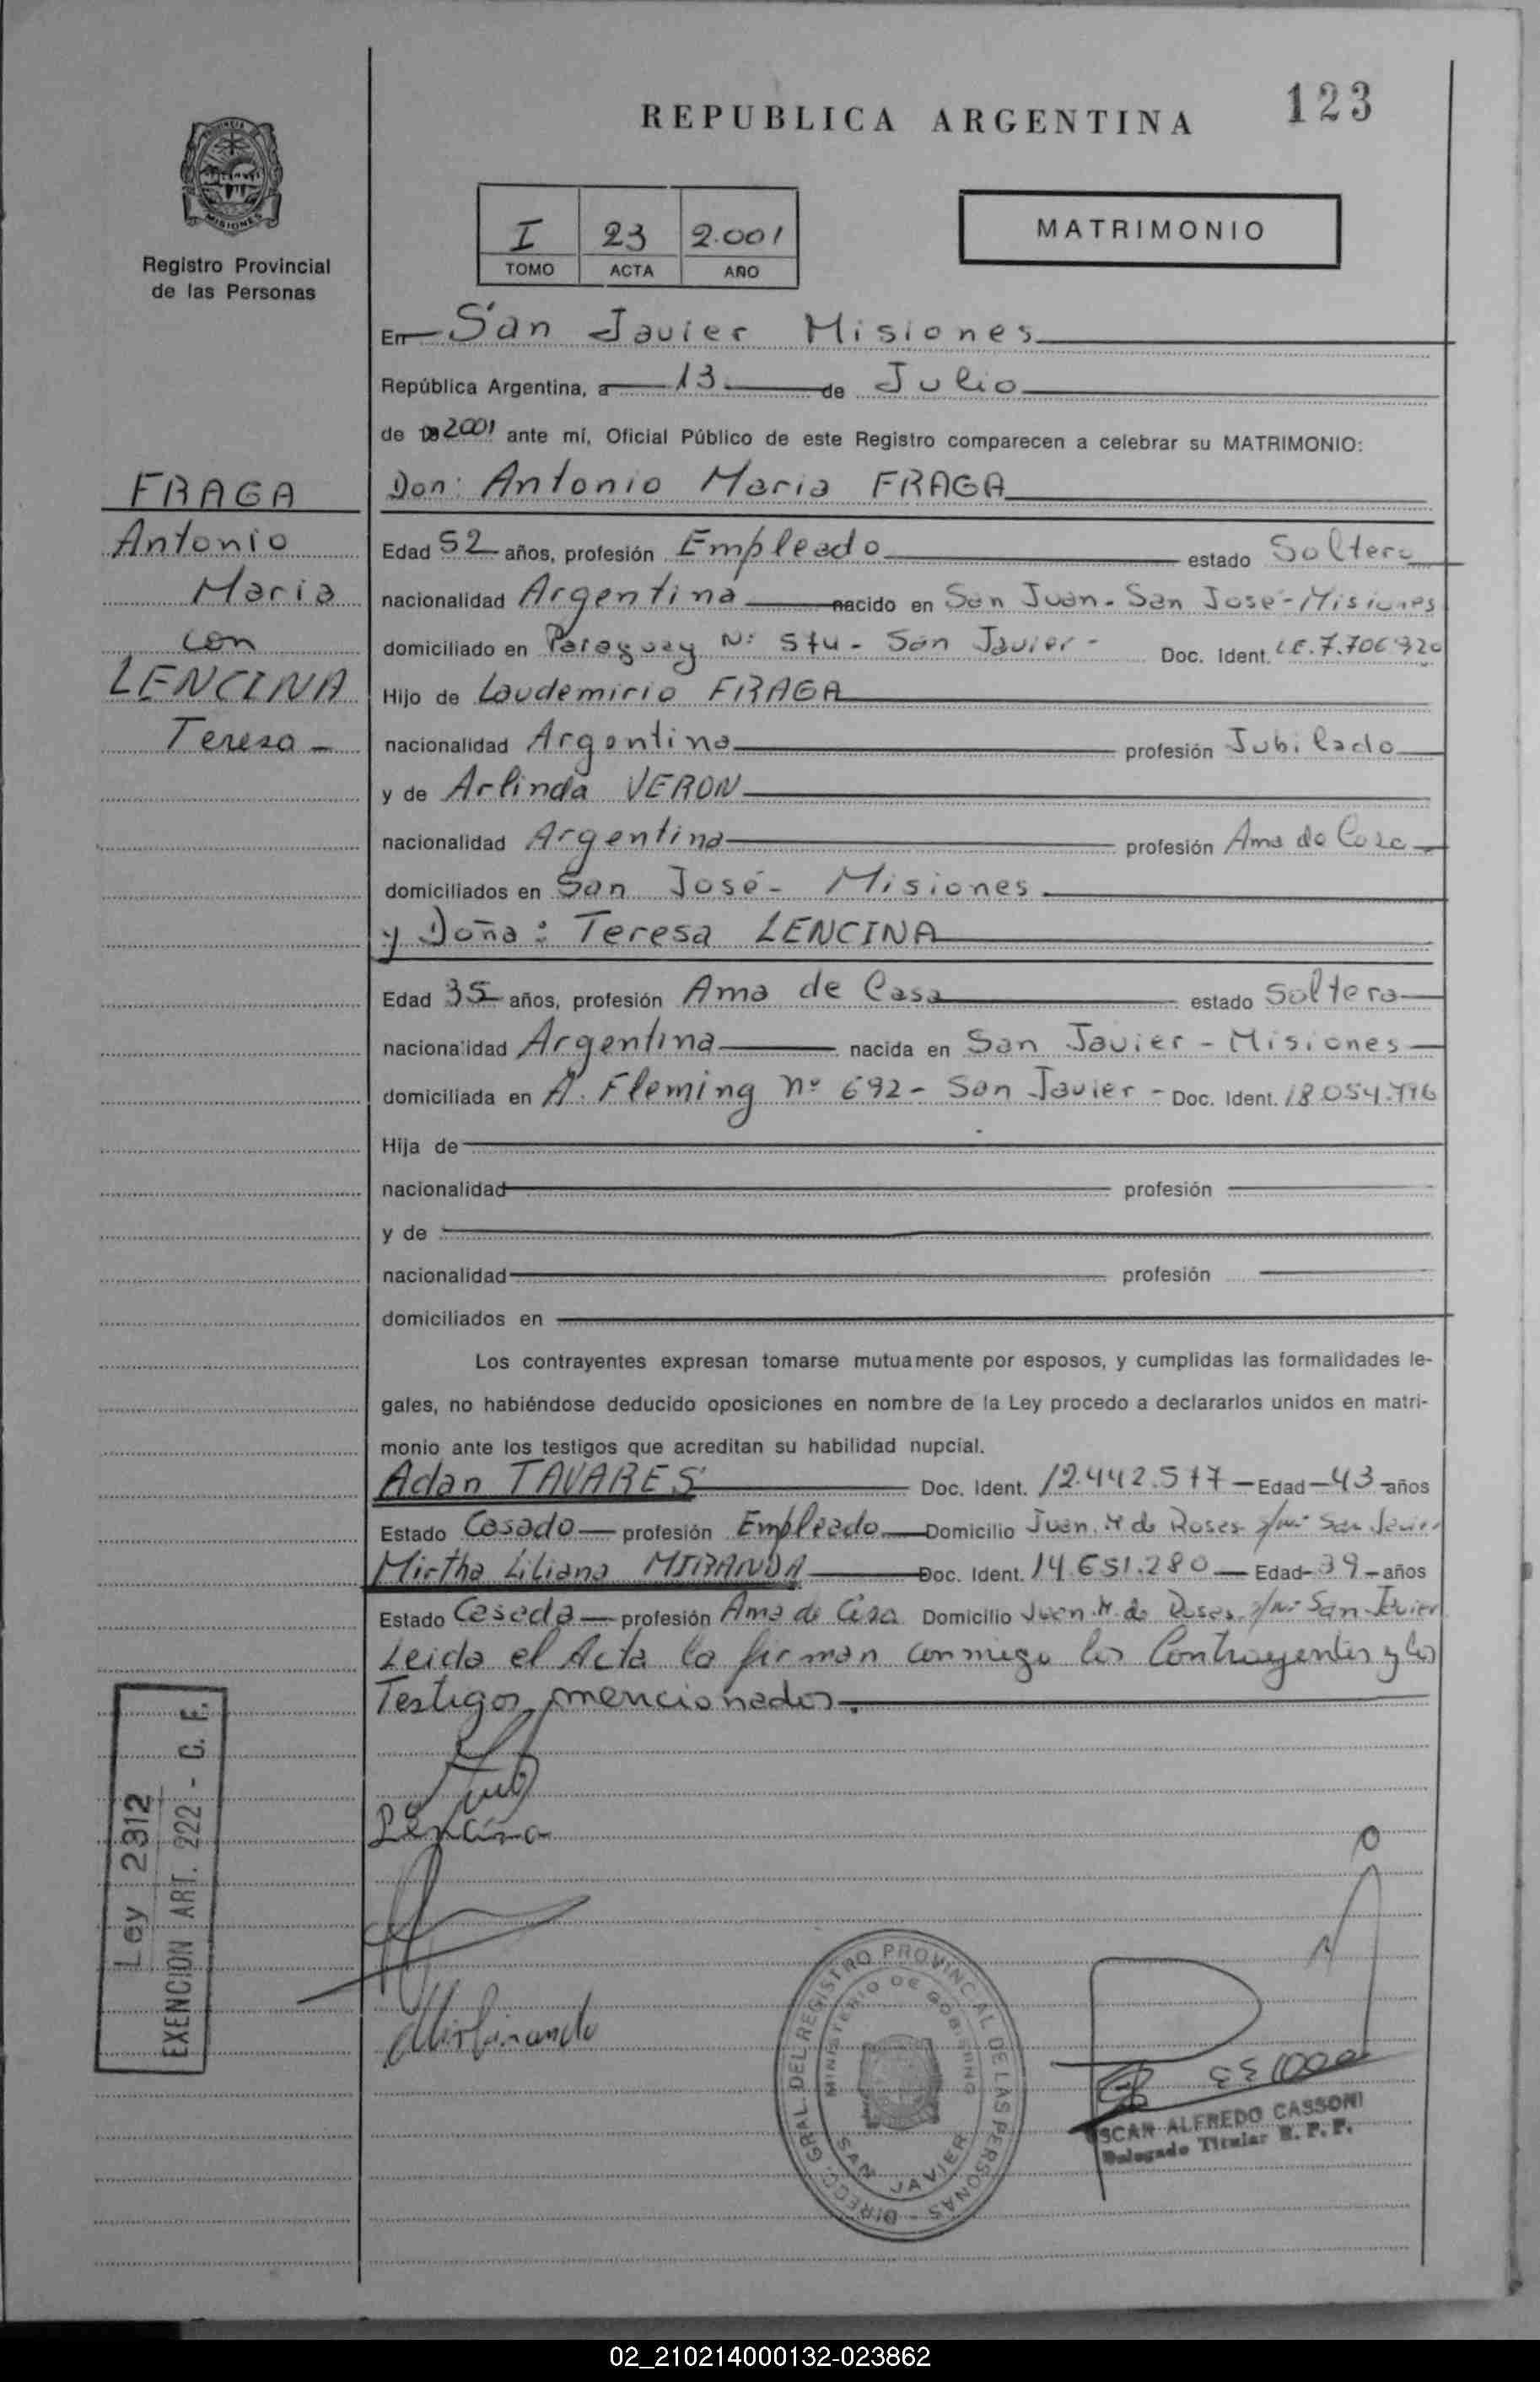 REPUBLICA ARGENTINA
123
PROVINCIA DE
MISIONES
Registro Provincial
de las Personas
I 23 2.001
TOMO ACTA AÑO
MATRIMONIO
En San Javier Misiones
República Argentina, a 13 de Julio
de 2001 ante mí, Oficial Público de este Registro comparecen a celebrar su MATRIMONIO:
FRAGA
Antonio
Maria
con
LENCINA
Teresa -
Don: Antonio Maria FRAGA
Edad 52 años, profesión Empleado estado Soltero
nacionalidad Argentina nacido en San Juan - San José - Misiones
domiciliado en Paraguay Nº - San Javier - Doc. Ident.
Hijo de Laudemirio FRAGA
nacionalidad Argentino profesión Jubilado
y de Arlinda VERON
nacionalidad Argentina profesión Ama de Casa
domiciliados en San José - Misiones
y Doña: Teresa LENCINA
Edad 35 años, profesión Ama de Casa estado Soltera
nacionalidad Argentina nacida en San Javier - Misiones
domiciliada en A. Fleming nº 692 - San Javier - Doc. Ident.
Hija de
nacionalidad profesión
y de
nacionalidad profesión
domiciliados en
Los contrayentes expresan tomarse mutuamente por esposos, y cumplidas las formalidades le-
gales, no habiéndose deducido oposiciones en nombre de la Ley procedo a declararlos unidos en matri-
monio ante los testigos que acreditan su habilidad nupcial.
Adan TAVARES Doc. Ident. Edad 43 años
Estado Casado profesión Empleado Domicilio Juan M de Rosas s/nº San Javier
Mirtha Liliana MIRANDA Doc. Ident. 14.651.280 Edad 39 años
Estado Casada profesión Ama de Casa Domicilio Juan M. de Rosas s/nº San Javier
Leida el Acta la firman conmigo los Contrayentes y los
Testigos mencionados.
Lencina
Ley 2312
EXENCION ART. 222 - C. F.
DIRECC. GRAL. DEL REGISTRO PROVINCIAL DE LAS PERSONAS
MINISTERIO DE GOBIERNO
SAN JAVIER
OSCAR ALFREDO CASSONI
Delegado Titular R. P. P.
02_210214000132-023862